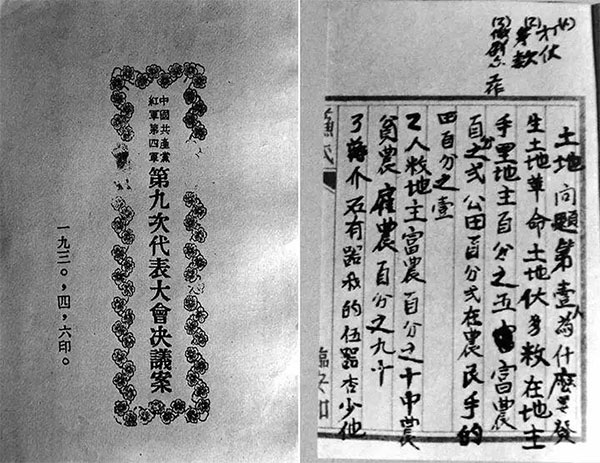 中國共產黨
紅軍第四軍
第九次代表大會决議案
一九三〇，四，六印。
(2)筹款
(3)
土地问题第壹為什麼要發
生土地革命土地伏多数在地主
手里地主百分之五富農
百分之弍公田百分弍在農民手的
田百分之壹
工人敉地主富農百分之十中農
貧農雇農百分之九十
了蔣介石有器我的伍器杏少他